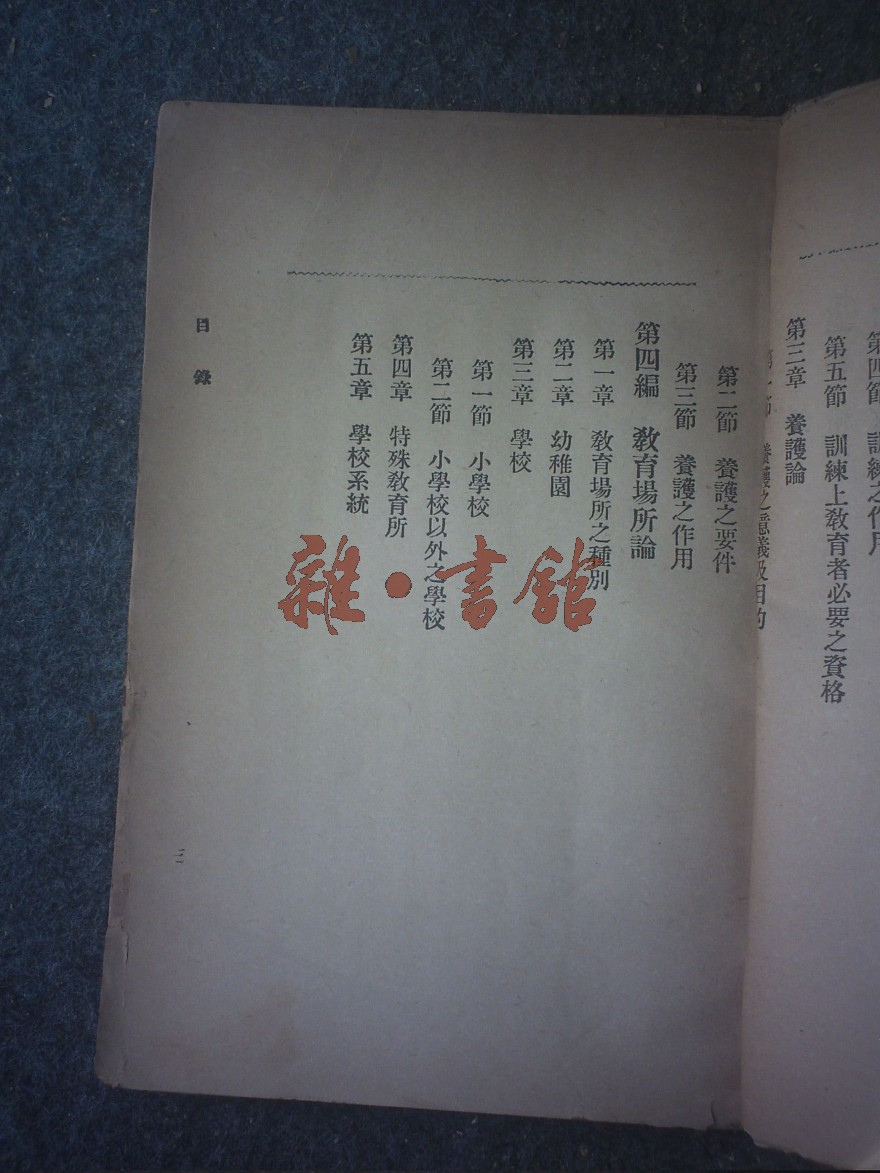 第四節 訓練之作用
第五節 訓練上教育者必要之資格
第三章 養護論
第一節 養護之意義及目的
第二節 養護之要件
第三節 養護之作用
第四編 教育場所論
第一章 教育場所之種別
第二章 幼稚園
第三章 學校
第一節 小學校
第二節 小學校以外之學校
第四章 特殊教育所
第五章 學校系統
目錄
三
雜·書館